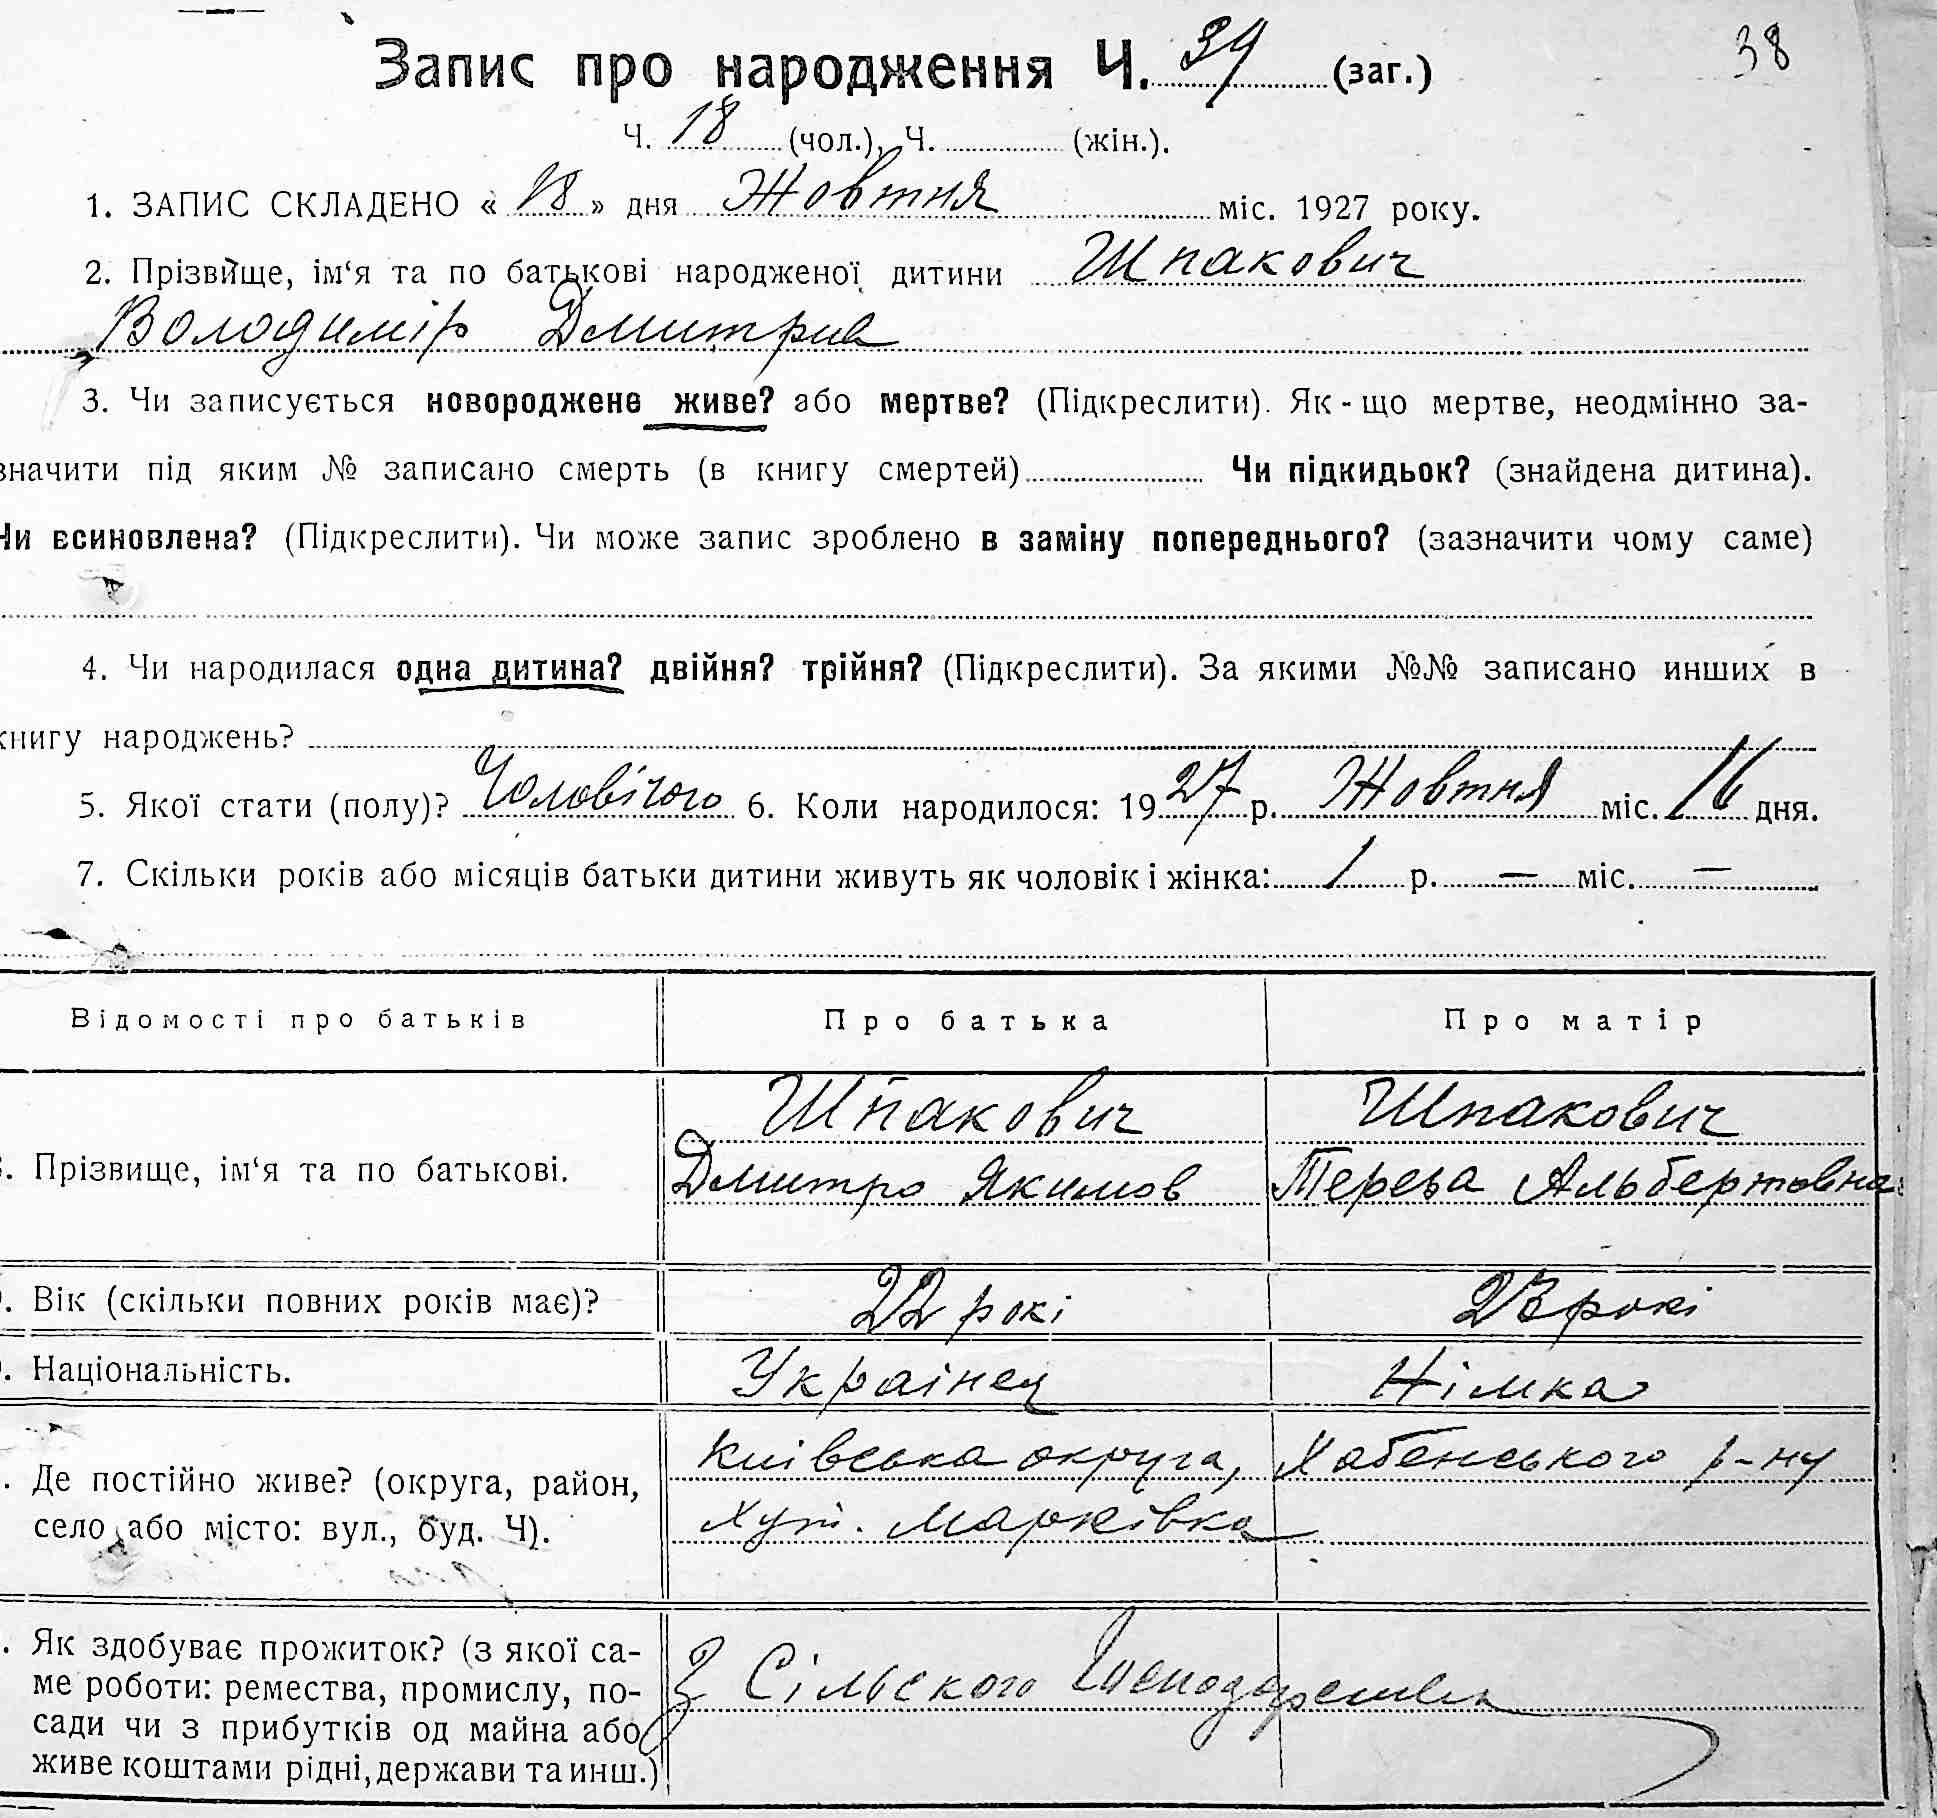 Запис про народження Ч. 39 (заг.) 38
Ч. 18 (чол.), Ч. (жін.).
1. ЗАПИС СКЛАДЕНО « 18 » дня Жовтня міс. 1927 року.
2. Прізвище, ім‘я та по батькові народженої дитини Шпакович
Володимір Дмитрив
3. Чи записується новороджене живе? або мертве? (Підкреслити). Як-що мертве, неодмінно за-
значити під яким № записано смерть (в книгу смертей) Чи підкидьок? (знайдена дитина).
Чи всиновлена? (Підкреслити). Чи може запис зроблено в заміну попереднього? (зазначити чому саме)
4. Чи народилася одна дитина? двійня? трійня? (Підкреслити). За якими №№ записано инших в
книгу народжень?
5. Якої стати (полу)? Чоловічого 6. Коли народилося: 1927 р. Жовтня міс. 16 дня.
7. Скільки років або місяців батьки дитини живуть як чоловік і жінка: 1 р. — міс. —
Відомості про батьків Про батька Про матір
Шпакович Шпакович
. Прізвище, ім‘я та по батькові. Дмитро Якимов Тереза Альбертовна
. Вік (скільки повних років має)? 22 рокі 23 рокі
. Національність. Украінец Німка
Київська округа, Хабенського р-ну
. Де постійно живе? (округа, район,
село або місто: вул., буд. Ч). Хут. Марківка
. Як здобуває прожиток? (з якої са-
ме роботи: ремества, промислу, по- З Сільского Господарства
сади чи з прибутків од майна або
живе коштами рідні, держави та инш.)